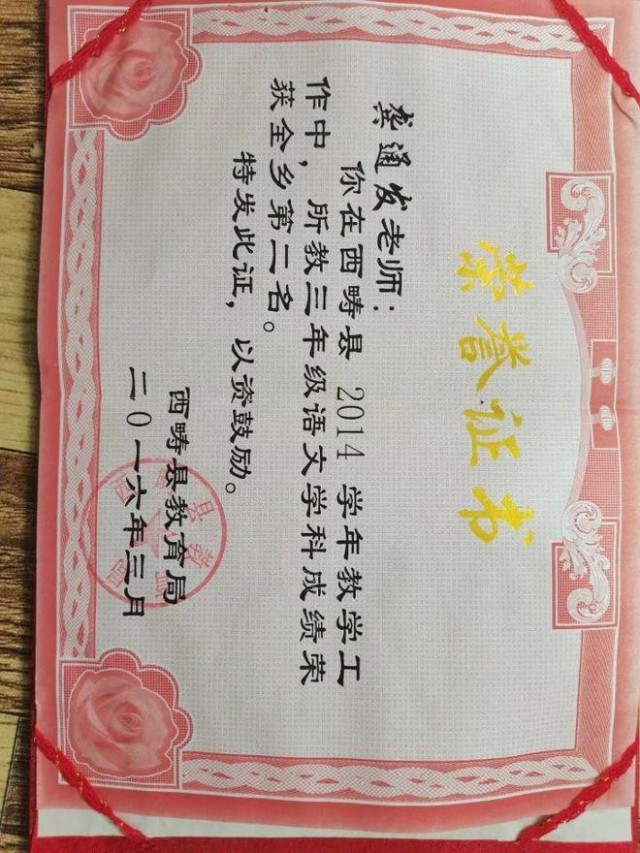 荣誉证书
龚通发老师:
你在西畴县 2014 学年教学工
作中，所教三年级语文学科成绩荣
获全乡第二名。
特发此证，以资鼓励。
西畴县教育局
二0一六年三月